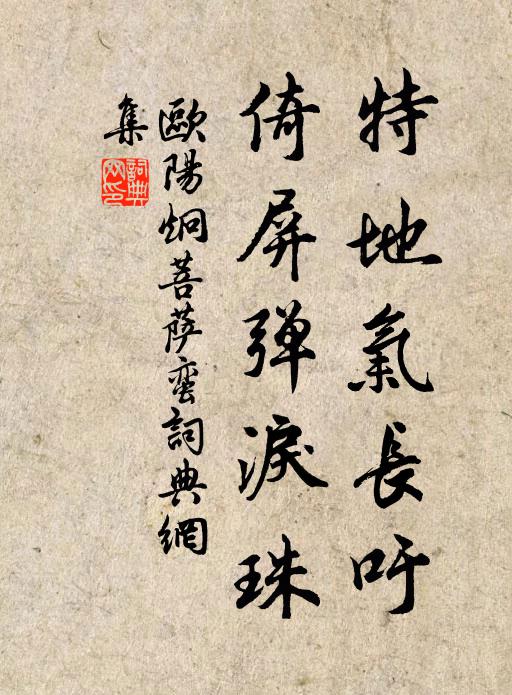 特地氣長吁
倚屏彈淚珠
歐陽炯菩薩蠻詞典網
集
詞典網印